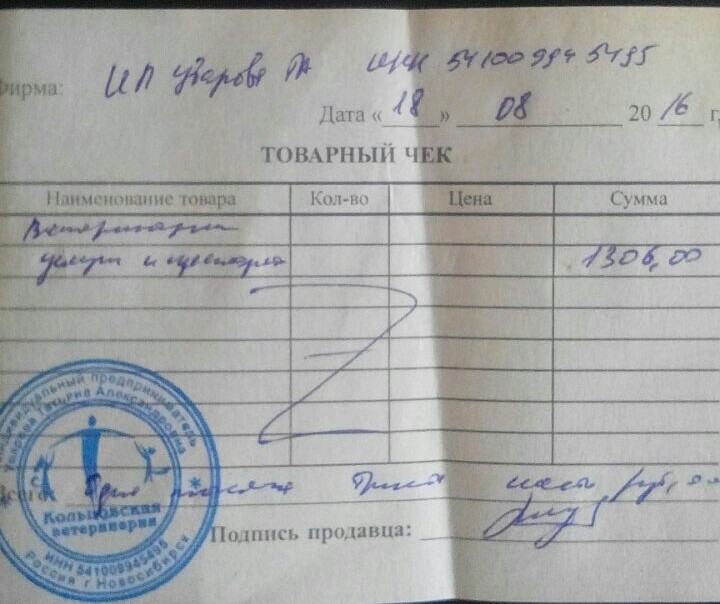 Фирма: ИП Уварова ТА ИНН 541009945495
Дата «18» 08 2016 г.
ТОВАРНЫЙ ЧЕК
Наименование товара Кол-во Цена Сумма
Ветеринарн
услуги и 1306,00
Всего: Одна тысяча Триста шесть руб, 00
Подпись продавца:
Индивидуальный предприниматель
Татьяна Александровна
Кольцовская
ветеринария
ИНН 541009945495
Россия г Новосибирск